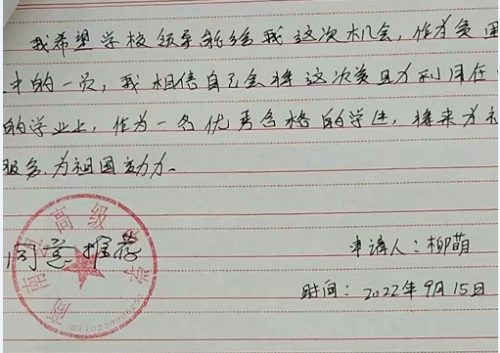 我希望学校领导能给我这次机会，作为贫困
中的一员，我相信自己会将这次资助利用在
的学业上，作为一名优秀合格的学生，将来为
服务，为祖国效力。
同意推荐
高级中学
申请人：柳萌
时间：2022年9月15日